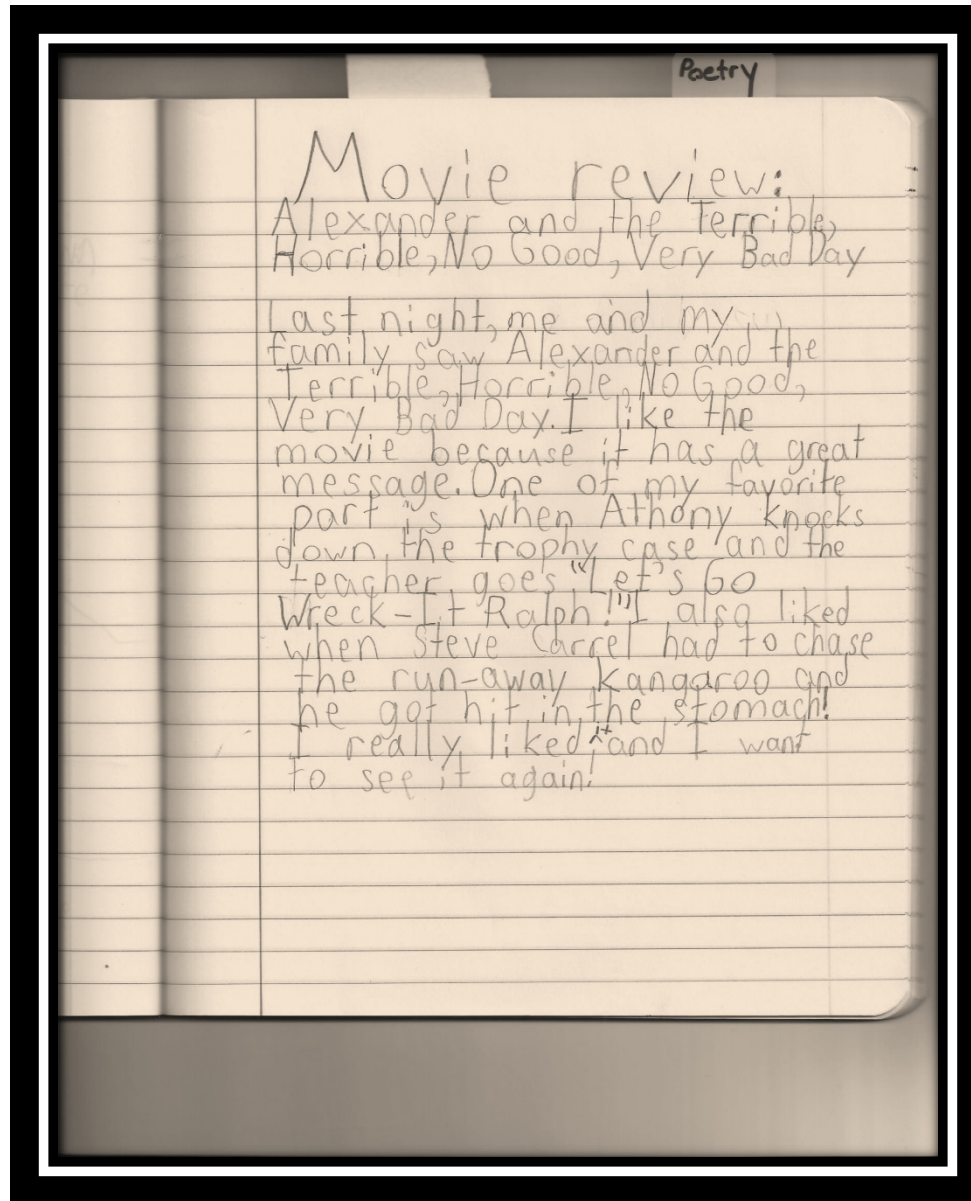 Poetry
Movie review:
Alexander and the Terrible,
Horrible, No Good, Very Bad Day
Last night, me and my
family saw Alexander and the
Terrible, Horrible, No Good,
Very Bad Day. I like the
movie because it has a great
message. One of my favorite
part is when Athony knocks
down the trophy case and the
teacher goes "Let's Go
Wreck-It Ralph!" I also liked
when Steve Carrel had to chase
the run-away kangaroo and
he got hit in the stomach!
I really liked it and I want
to see it again!